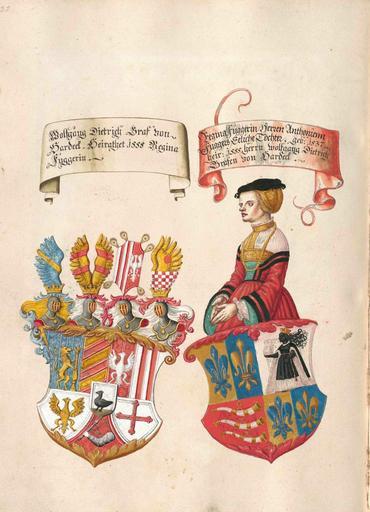 Wolfgang Dietrich Graf von
Hardeck. Heirathet 1555 Regina
Fuggerin.
Regina Fuggerin Herren Anthonienn
Fuggers Eeliche Tochter. Geb: 1537
heir: 1555 herrn Wolfgang Dietrich
Grafen von Hardeck